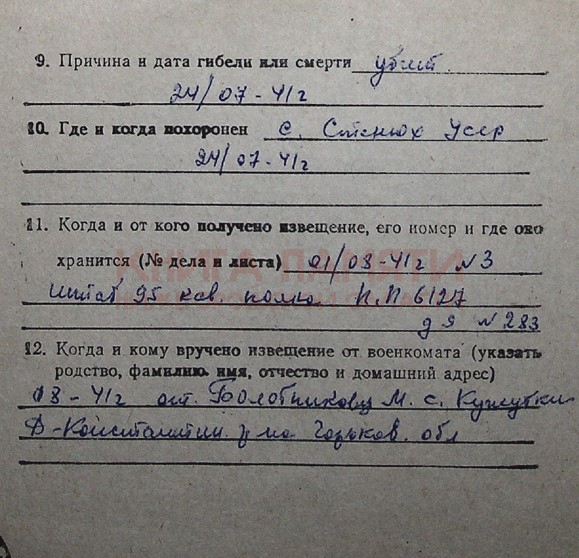 9. Причина и дата гибели или смерти убит
24/07-41г
10. Где и когда похоронен с. Стенюх Усср
24/07-41г
11. Когда и от кого получено извещение, его номер и где оно
хранится (№ дела и листа) 01/08-41г №3
КНИГА ПАМЯТИ
штаб 95 кав. полка П.П 6127
д 9 №283
12. Когда и кому вручено извещение от военкомата (указать
родство, фамилию, имя, отчество и домашний адрес)
08-41г от. Болотникову М. с. Кужутки
Д-Константин. р-на Горьков. обл